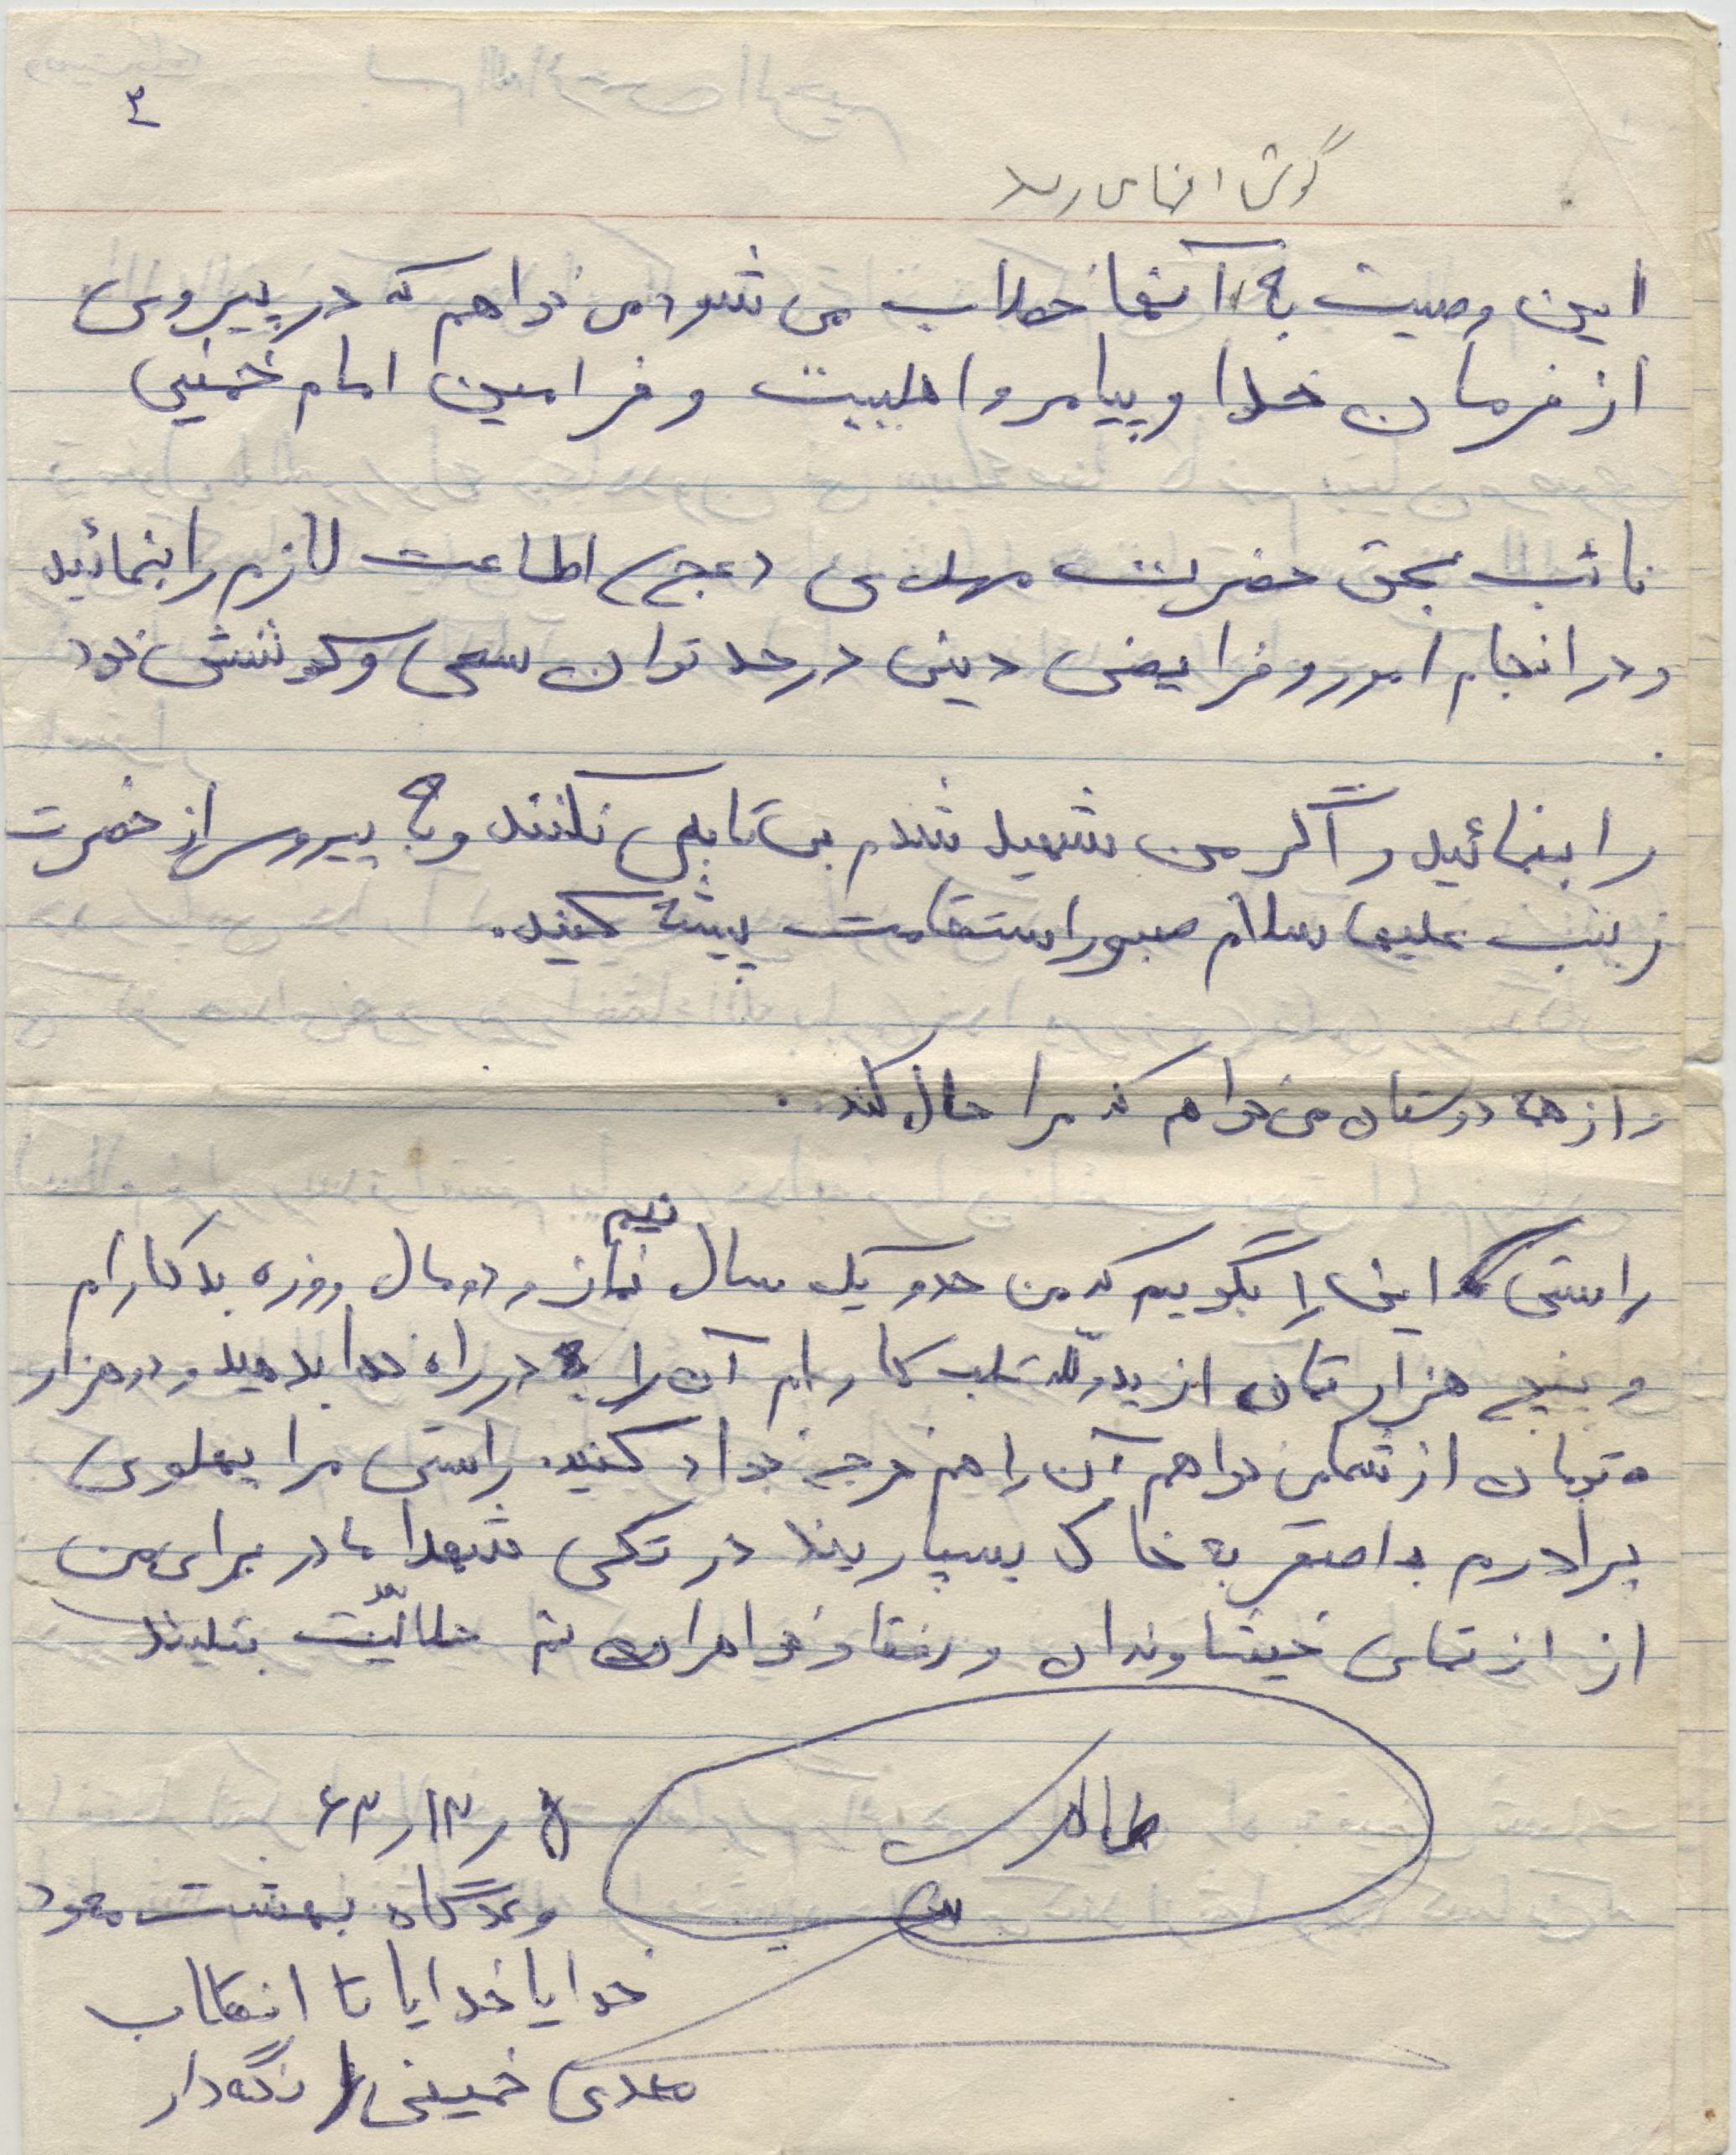 ۳
گوش آنهای رسد
این وصیت به آنها خطاب می شود می خواهم که در پیروی
از فرمان خدا و پیامر و اهلبیت و فرامین امام خمینی
نائب بحق حضرت مهدی (عج) اطاعت لازم را بنمائید
و در انجام امور و فرایض دینی در حد توان سعی و کوشش خود
را بنمائید و اگر من شهید شدم بی تابی نکنند و با پیروی از حضرت
زینب علیها سلام صبور استقامت پیشه کنید.
و از همه دوستان می خواهم که مرا حلال کند.
راستی این را بگویم که من حدود یک سال نیم نماز و دو سال روزه بدکارام
و پنج هزار تمان از یدالله طلب کارام آن را در راه خدا بدهید و دو هزار
تومان از می خواهم آن را هم خرج کنید. راستی مرا پهلوی
برادرم اصغر به خاک بسپارید در تکی شهدا مادر برای من
از از تمامی خیشاوندان و رفقا و خواهران حلالیّت بتلبند
طاهری
۶۳/۱۲/۵
وعدگاه بهشت معود
خدایا خدایا تا انقلاب
مهدی خمینی را نگه دار